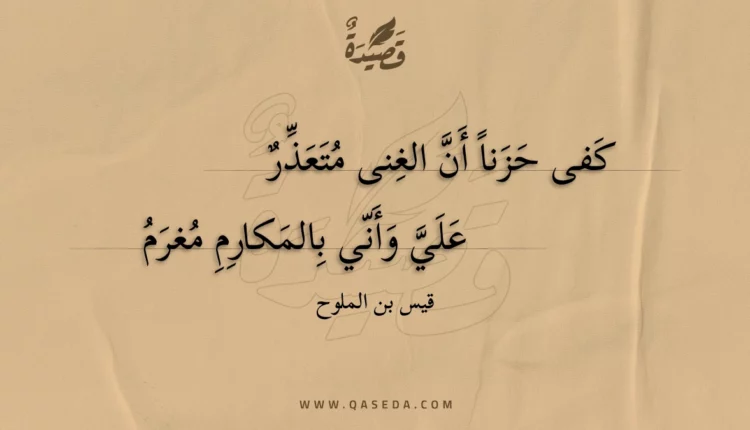 قَصِيدَةٌ
كَفى حَزَناً أَنَّ الغِنى مُتَعَذِّرٌ
عَلَيَّ وَأَنّي بِالمَكارِمِ مُغرَمُ
قيس بن الملوح
WWW.QASEDA.COM